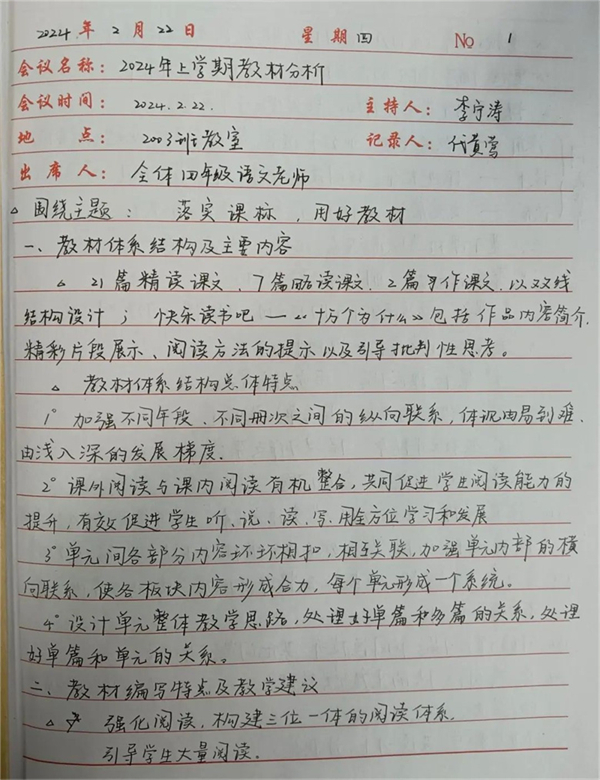 2024 年 2 月 22 日 星 期 四 No 1
会议名称：2024年上学期教材分析
会议时间：2024.2.22. 主持人：李宁涛
地 点：2003班教室 记录人：代
出 席 人：全体四年级语文老师
△ 围绕主题：落实课标，用好教材
一、教材体系结构及主要内容
△ 21篇精读课文、7篇略读课文、2篇习作课文，以双线
结构设计；快乐读书吧—《十万个为什么》包括作品内容简介、
精彩片段展示、阅读方法的提示以及引导批判性思考。
△ 教材体系结构总体特点
1° 加强不同年段、不同册次之间的纵向联系，体现由易到难、
由浅入深的发展梯度.
2° 课外阅读与课内阅读有机整合，共同促进学生阅读能力的
提升，有效促进学生听、说、读、写、用全方位学习和发展
3° 单元间各部分内容环环相扣，相互关联，加强单元内部的横
向联系，使各板块内容形成合力，每个单元形成一个系统。
4° 设计单元整体教学思路，处理好单篇和多篇的关系，处理
好单篇和单元的关系。
二、教材编写特点及教学建议
△ 强化阅读，构建三位一体的阅读体系.
引导学生大量阅读.